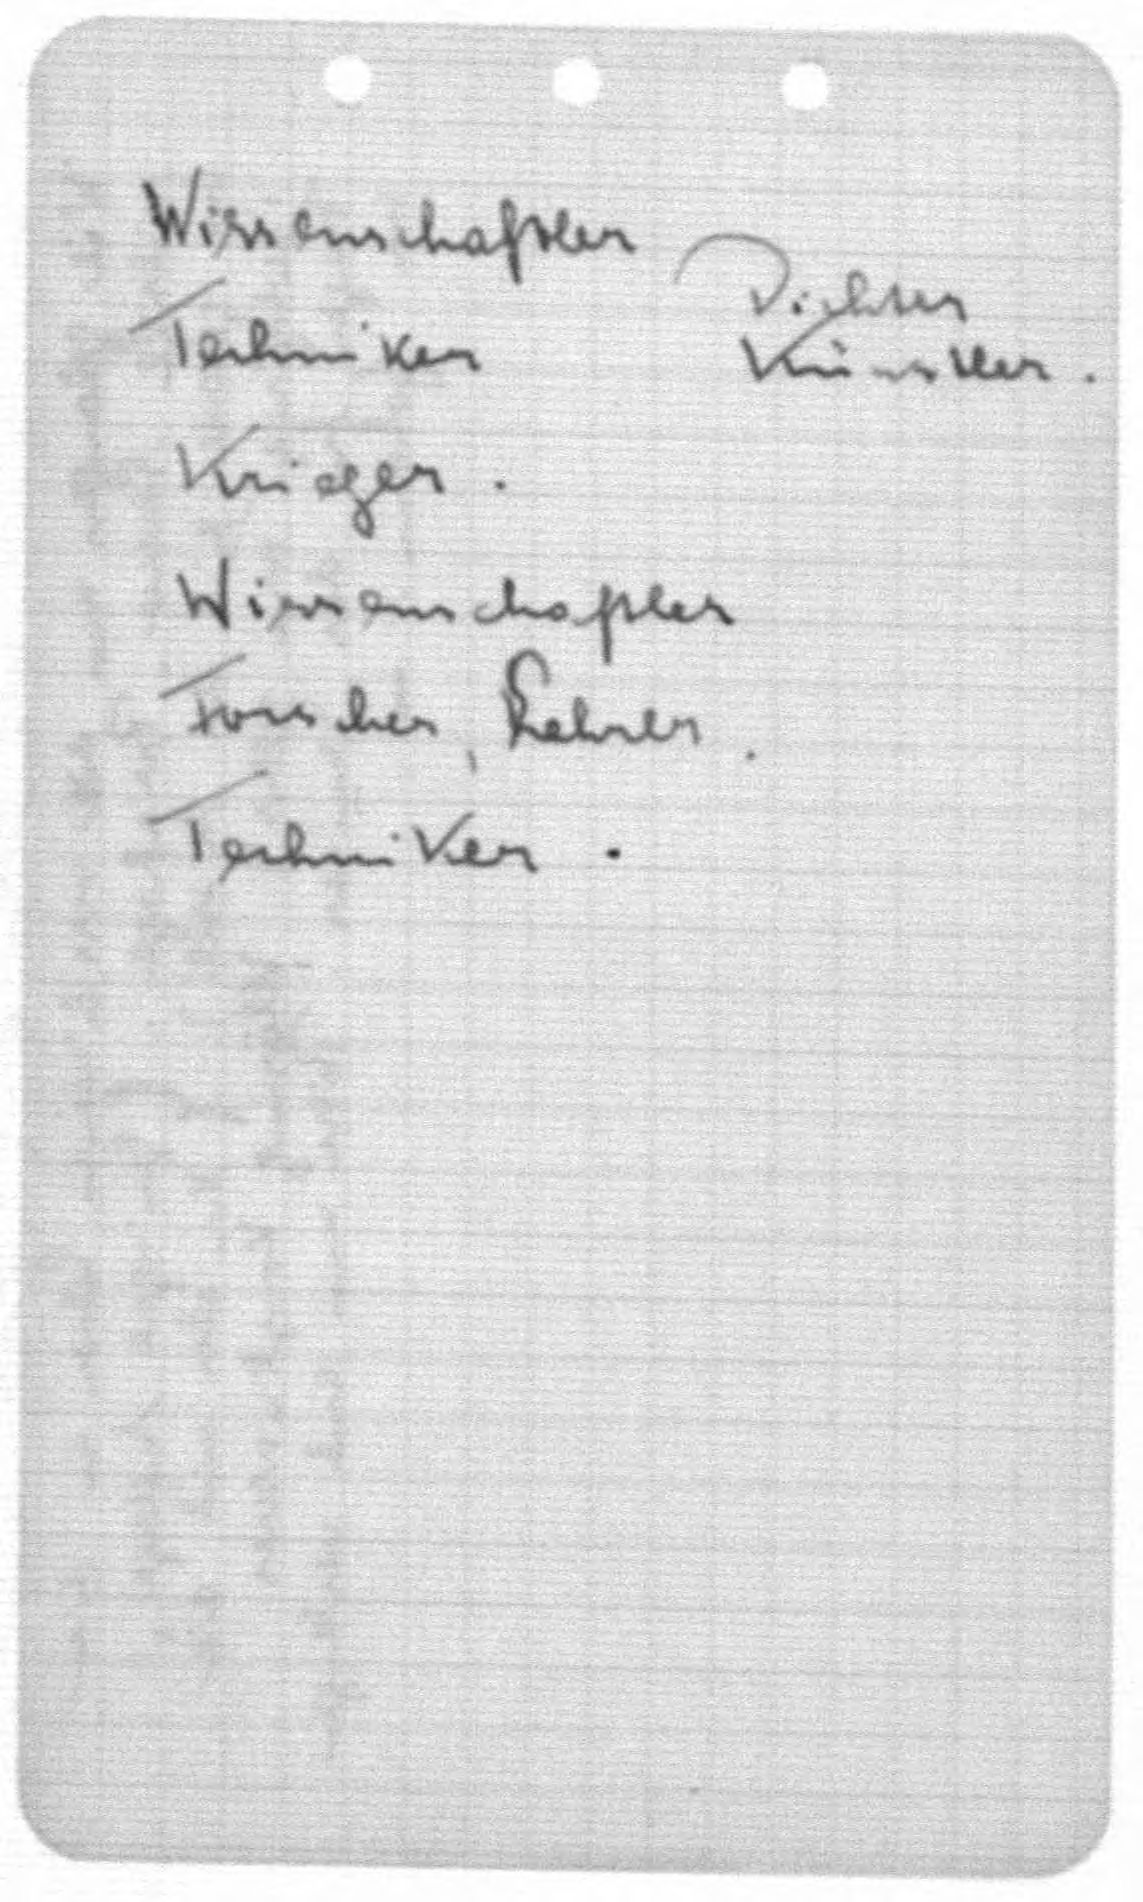 Wissenschaftler
Dichter
Techniker
Künstler.
Krieger.
Wissenschaftler
Forscher, Lehrer.
Techniker.